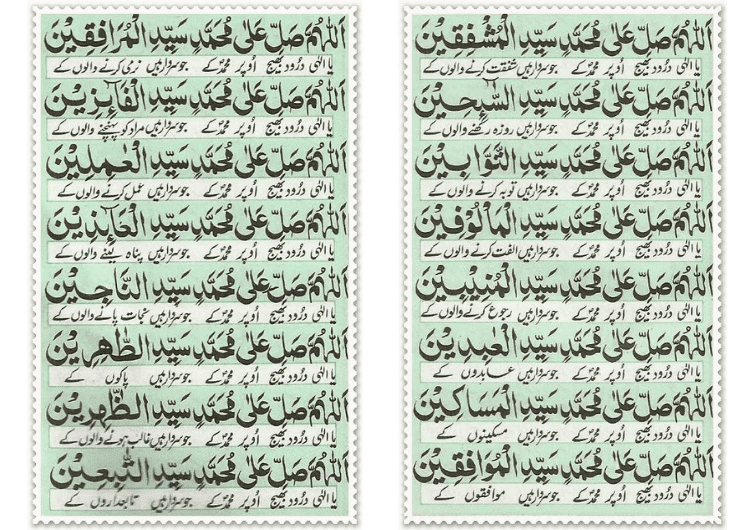 اَللّٰهُمَّ صَلِّ عَلٰى مُحَمَّدٍ سَيِّدِ الْمُشْفِقِيْنَ
یا الٰہی درُود بھیج اُوپر محمدؐ کے جو سردار ہیں شفقت کرنے والوں کے
اَللّٰهُمَّ صَلِّ عَلٰى مُحَمَّدٍ سَيِّدِ السّٰٓبِحِيْنَ
یا الٰہی درُود بھیج اُوپر محمدؐ کے جو سردار ہیں روزہ رکھنے والوں کے
اَللّٰهُمَّ صَلِّ عَلٰى مُحَمَّدٍ سَيِّدِ التَّوَّابِيْنَ
یا الٰہی درُود بھیج اُوپر محمدؐ کے جو سردار ہیں توبہ کرنے والوں کے
اَللّٰهُمَّ صَلِّ عَلٰى مُحَمَّدٍ سَيِّدِ الْمَالُوْفِيْنَ
یا الٰہی درُود بھیج اُوپر محمدؐ کے جو سردار ہیں الفت کرنے والوں کے
اَللّٰهُمَّ صَلِّ عَلٰى مُحَمَّدٍ سَيِّدِ الْمُنِيْبِيْنَ
یا الٰہی درُود بھیج اُوپر محمدؐ کے جو سردار ہیں رجوع کرنے والوں کے
اَللّٰهُمَّ صَلِّ عَلٰى مُحَمَّدٍ سَيِّدِ الْعٰبِدِيْنَ
یا الٰہی درُود بھیج اُوپر محمدؐ کے جو سردار ہیں عابدوں کے
اَللّٰهُمَّ صَلِّ عَلٰى مُحَمَّدٍ سَيِّدِ الْمَسَاكِيْنَ
یا الٰہی درُود بھیج اُوپر محمدؐ کے جو سردار ہیں مسکینوں کے
اَللّٰهُمَّ صَلِّ عَلٰى مُحَمَّدٍ سَيِّدِ الْمُوَافِقِيْنَ
یا الٰہی درُود بھیج اُوپر محمدؐ کے جو سردار ہیں موافقوں کے
اَللّٰهُمَّ صَلِّ عَلٰى مُحَمَّدٍ سَيِّدِ الْمُرَافِقِيْنَ
یا الٰہی درُود بھیج اُوپر محمدؐ کے جو سردار ہیں نرمی کرنے والوں کے
اَللّٰهُمَّ صَلِّ عَلٰى مُحَمَّدٍ سَيِّدِ الْفَآئِزِيْنَ
یا الٰہی درُود بھیج اُوپر محمدؐ کے جو سردار ہیں مراد کو پہنچنے والوں کے
اَللّٰهُمَّ صَلِّ عَلٰى مُحَمَّدٍ سَيِّدِ الْعٰمِلِيْنَ
یا الٰہی درُود بھیج اُوپر محمدؐ کے جو سردار ہیں عمل کرنے والوں کے
اَللّٰهُمَّ صَلِّ عَلٰى مُحَمَّدٍ سَيِّدِ الْعَآئِذِيْنَ
یا الٰہی درُود بھیج اُوپر محمدؐ کے جو سردار ہیں پناہ لینے والوں کے
اَللّٰهُمَّ صَلِّ عَلٰى مُحَمَّدٍ سَيِّدِ النَّاجِيْنَ
یا الٰہی درُود بھیج اُوپر محمدؐ کے جو سردار ہیں نجات پانے والوں کے
اَللّٰهُمَّ صَلِّ عَلٰى مُحَمَّدٍ سَيِّدِ الطّٰهِرِيْنَ
یا الٰہی درُود بھیج اُوپر محمدؐ کے جو سردار ہیں پاکوں کے
اَللّٰهُمَّ صَلِّ عَلٰى مُحَمَّدٍ سَيِّدِ الظّٰهِرِيْنَ
یا الٰہی درُود بھیج اُوپر محمدؐ کے جو سردار ہیں غالب ہونے والوں کے
اَللّٰهُمَّ صَلِّ عَلٰى مُحَمَّدٍ سَيِّدِ التّٰبِعِيْنَ
یا الٰہی درُود بھیج اُوپر محمدؐ کے جو سردار ہیں تابعداروں کے